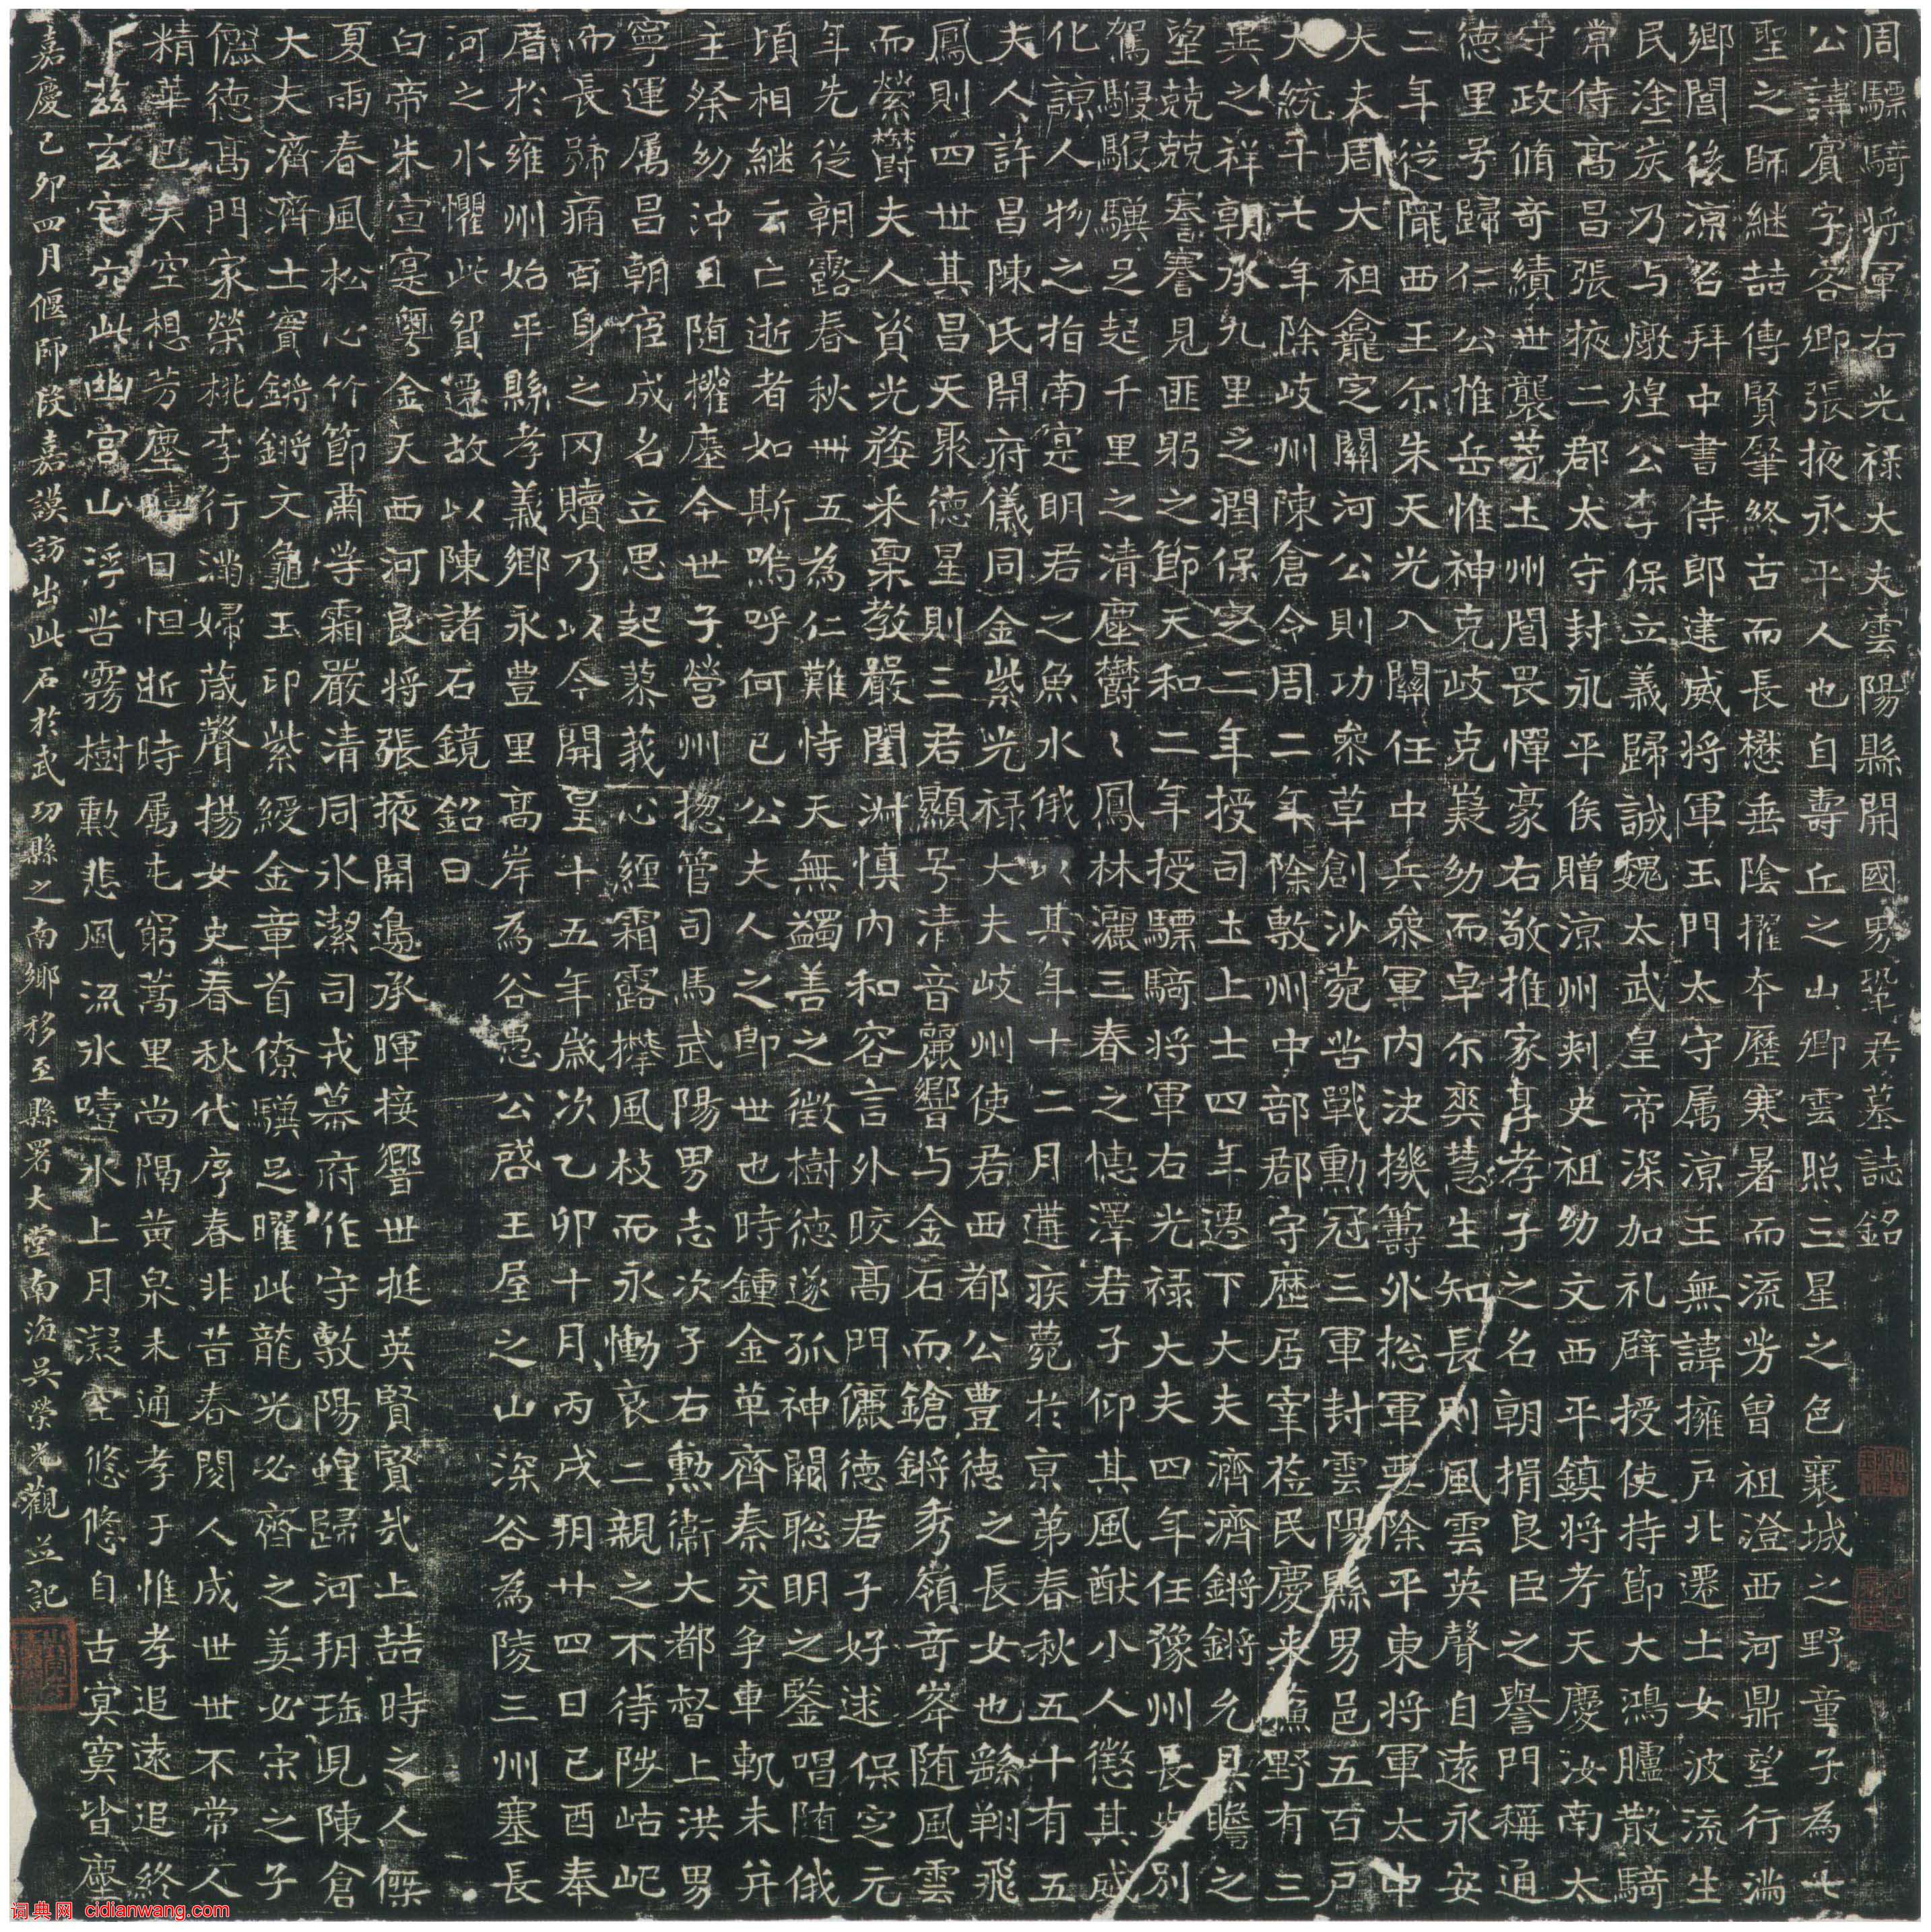 周驃騎將軍右光祿大夫雲陽縣開國男鞏君墓誌銘
公諱賓字客卿張掖永平人也自壽丘之山卿雲照三星之色襄城之野童子為七
聖之師継喆傳賢肇終古而長懋垂陰擢夲歷寒暑而流芳曾祖澄西河鼎望行滿
鄉閭後涼召拜中書侍郎建威將軍玉門太守属涼王無諱擁戶北遷士女波流生
民塗炭乃与燉煌公李保立義歸誠魏太武皇帝深加礼辟授使持節大鴻臚散騎
常侍高昌張掖二郡太守封永平侯贈涼州刾史祖幼文西平鎮將考天慶汝南太
守政脩奇績世襲茅土州閭畏憚豪右敬推家享孝子之名朝捐良臣之譽門稱通
德里号歸仁公惟岳惟神克岐克嶷幼而卓尒奕慧生知長則風雲英聲自遠永安
二年從隴西王尒朱天光入關任中兵叅軍内决機籌外捴軍要除平東將軍太中
大夫周大祖龕定關河公則功叅草創沙苑苦戰勳冠三軍封雲陽縣男邑五百戶
大統十七年除岐州陳倉令周二年除敷州中部郡守歷居宰莅民慶来蘇野有三
異之祥朝承九里之潤保定二年授司土上士四年遷下大夫濟濟鏘鏘允具瞻之
望兢兢謇謇見匪躬之節天和二年授驃騎將軍右光祿大夫四年任豫州長史別
駕騣騣驥足起千里之清塵欝〻鳳林灑三春之憓澤君子仰其風猷小人懲其威
化諒人物之指南寔明君之魚水俄以其年十二月遘疾薨於京第春秋五十有五
夫人許昌陳氏開府儀同金紫光祿大夫岐州使君西都公豊徳之長女也繇翔飛
鳳則四世其昌天聚德星則三君顯号清音麗響与金石而鎗鏘秀嶺奇峯随風雲
而縈欝夫人資光婺采稟教嚴闈淵慎内和容言外晈高門儷德君子好逑保定元
年先從朝露春秋卌五為仁難恃天無蠲善之徵樹徳遂孤神闕聡明之鑒唱随俄
頃相継云亡逝者如斯嗚呼何已公夫人之即世也時鍾金革齊秦交争車軌未并
主祭幼沖且随權塟今世子營州揔管司馬武陽男志次子右勲衞大都督上洪男
寧運属昌朝宦成名立思起蓼莪心緾霜露攀風枝而永慟哀二親之不待陟岵屺
而長號痛百身之罔贖乃以今開皇十五年歲次乙卯十月丙戌朔廿四日己酉奉
厝於雍州始平縣孝義鄉永豊里高岸為谷愚公啓王屋之山深谷為陵三州塞長
河之水懼此貿遷故以陳諸石鏡銘曰
白帝朱宣寔粵金天西河良將張掖開邊承暉接響世挺英賢賢弐上喆時之人傑
夏雨春風松心竹節肅䒨霜嚴清同水潔司戎幕府作守敷陽蝗歸河朔瑞見陳倉
大夫濟濟士實鏘鏘文龜玉印紫綬金章首僚驥足曜此龍光必齊之美必宋之子
儷德高門家榮桃李行滿婦葴聲揚女史春秋代序春非昔春閱人成世世不常人
精華已矣空想芳塵晦日怛逝時属屯窮萬里尚隔黄泉未通孝于惟孝追遠追終
卜玆玄宅穴此幽宫山浮苦霧樹勲悲風流氷噎水上月凝空悠悠自古寞寞皆塵
嘉慶己卯四月偃師段嘉謨訪出此石於武功縣之南鄉移至縣署大堂南海吳榮光觀並記
词典网 cidianwang.com